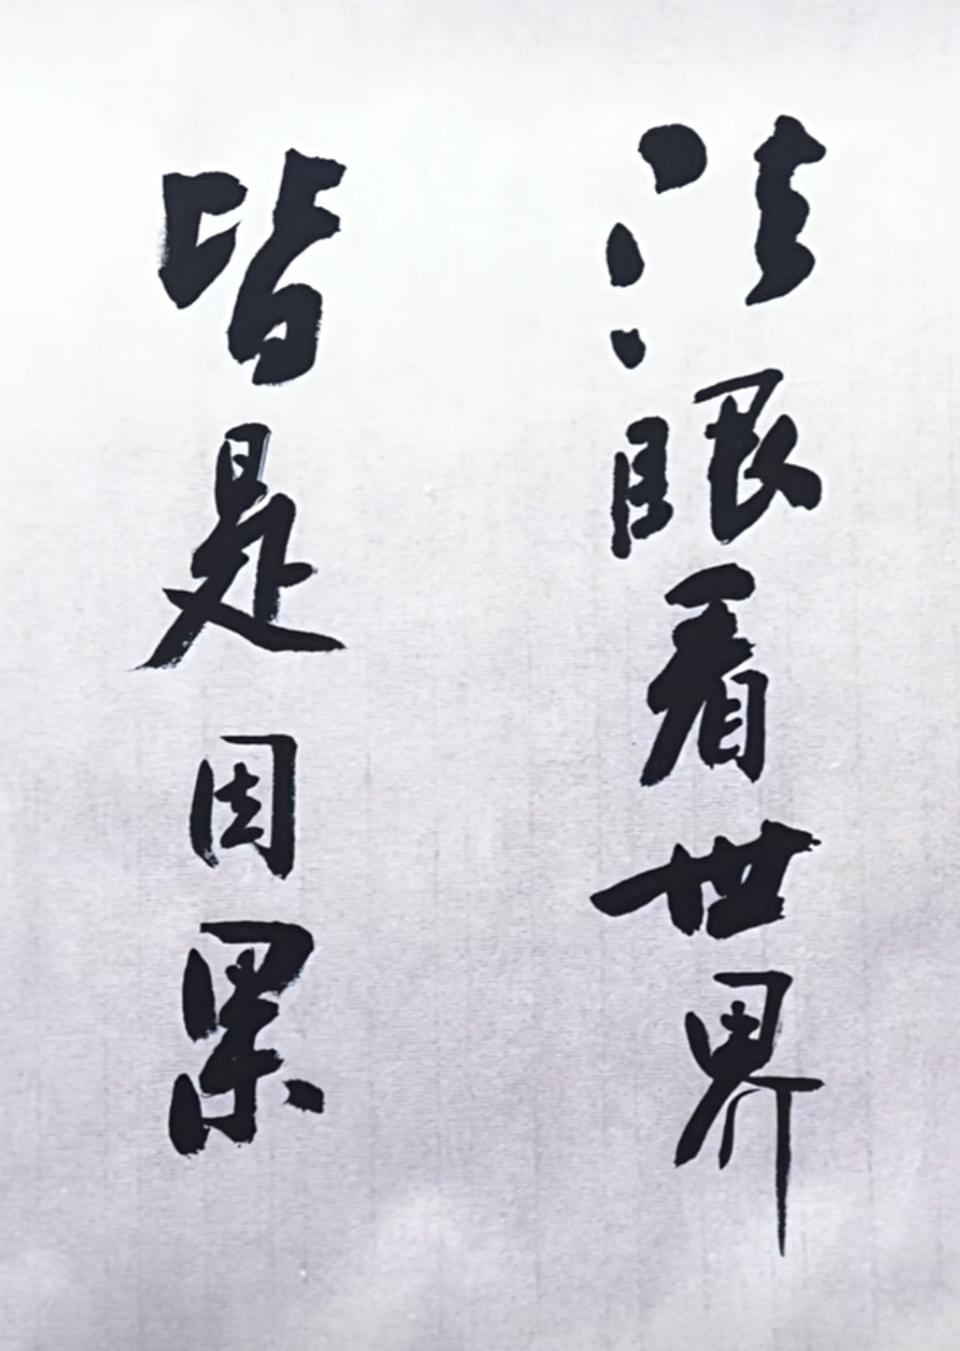 法眼看世界
皆是因果